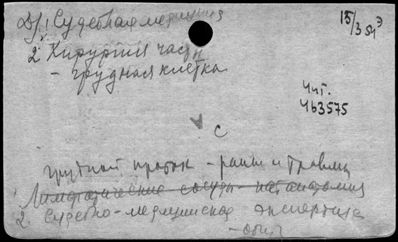 Д/1 Судебная медицина
15/3 51 э
2 Хирургия частн
- грудная клетка
Чит.
463575
с
грудной проток - раны и травмы
1 Лимфатические сосуды - пат. анатомия
2 Судебно-медицинская экспертиза